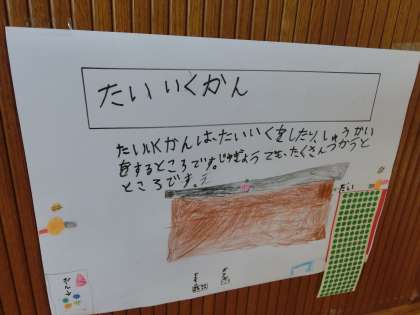 たいいくかん
たいいくかんは、たいいくをしたり、しゅうかい
をするところです。じゅぎょうでも、たくさんつかうと
ところです。